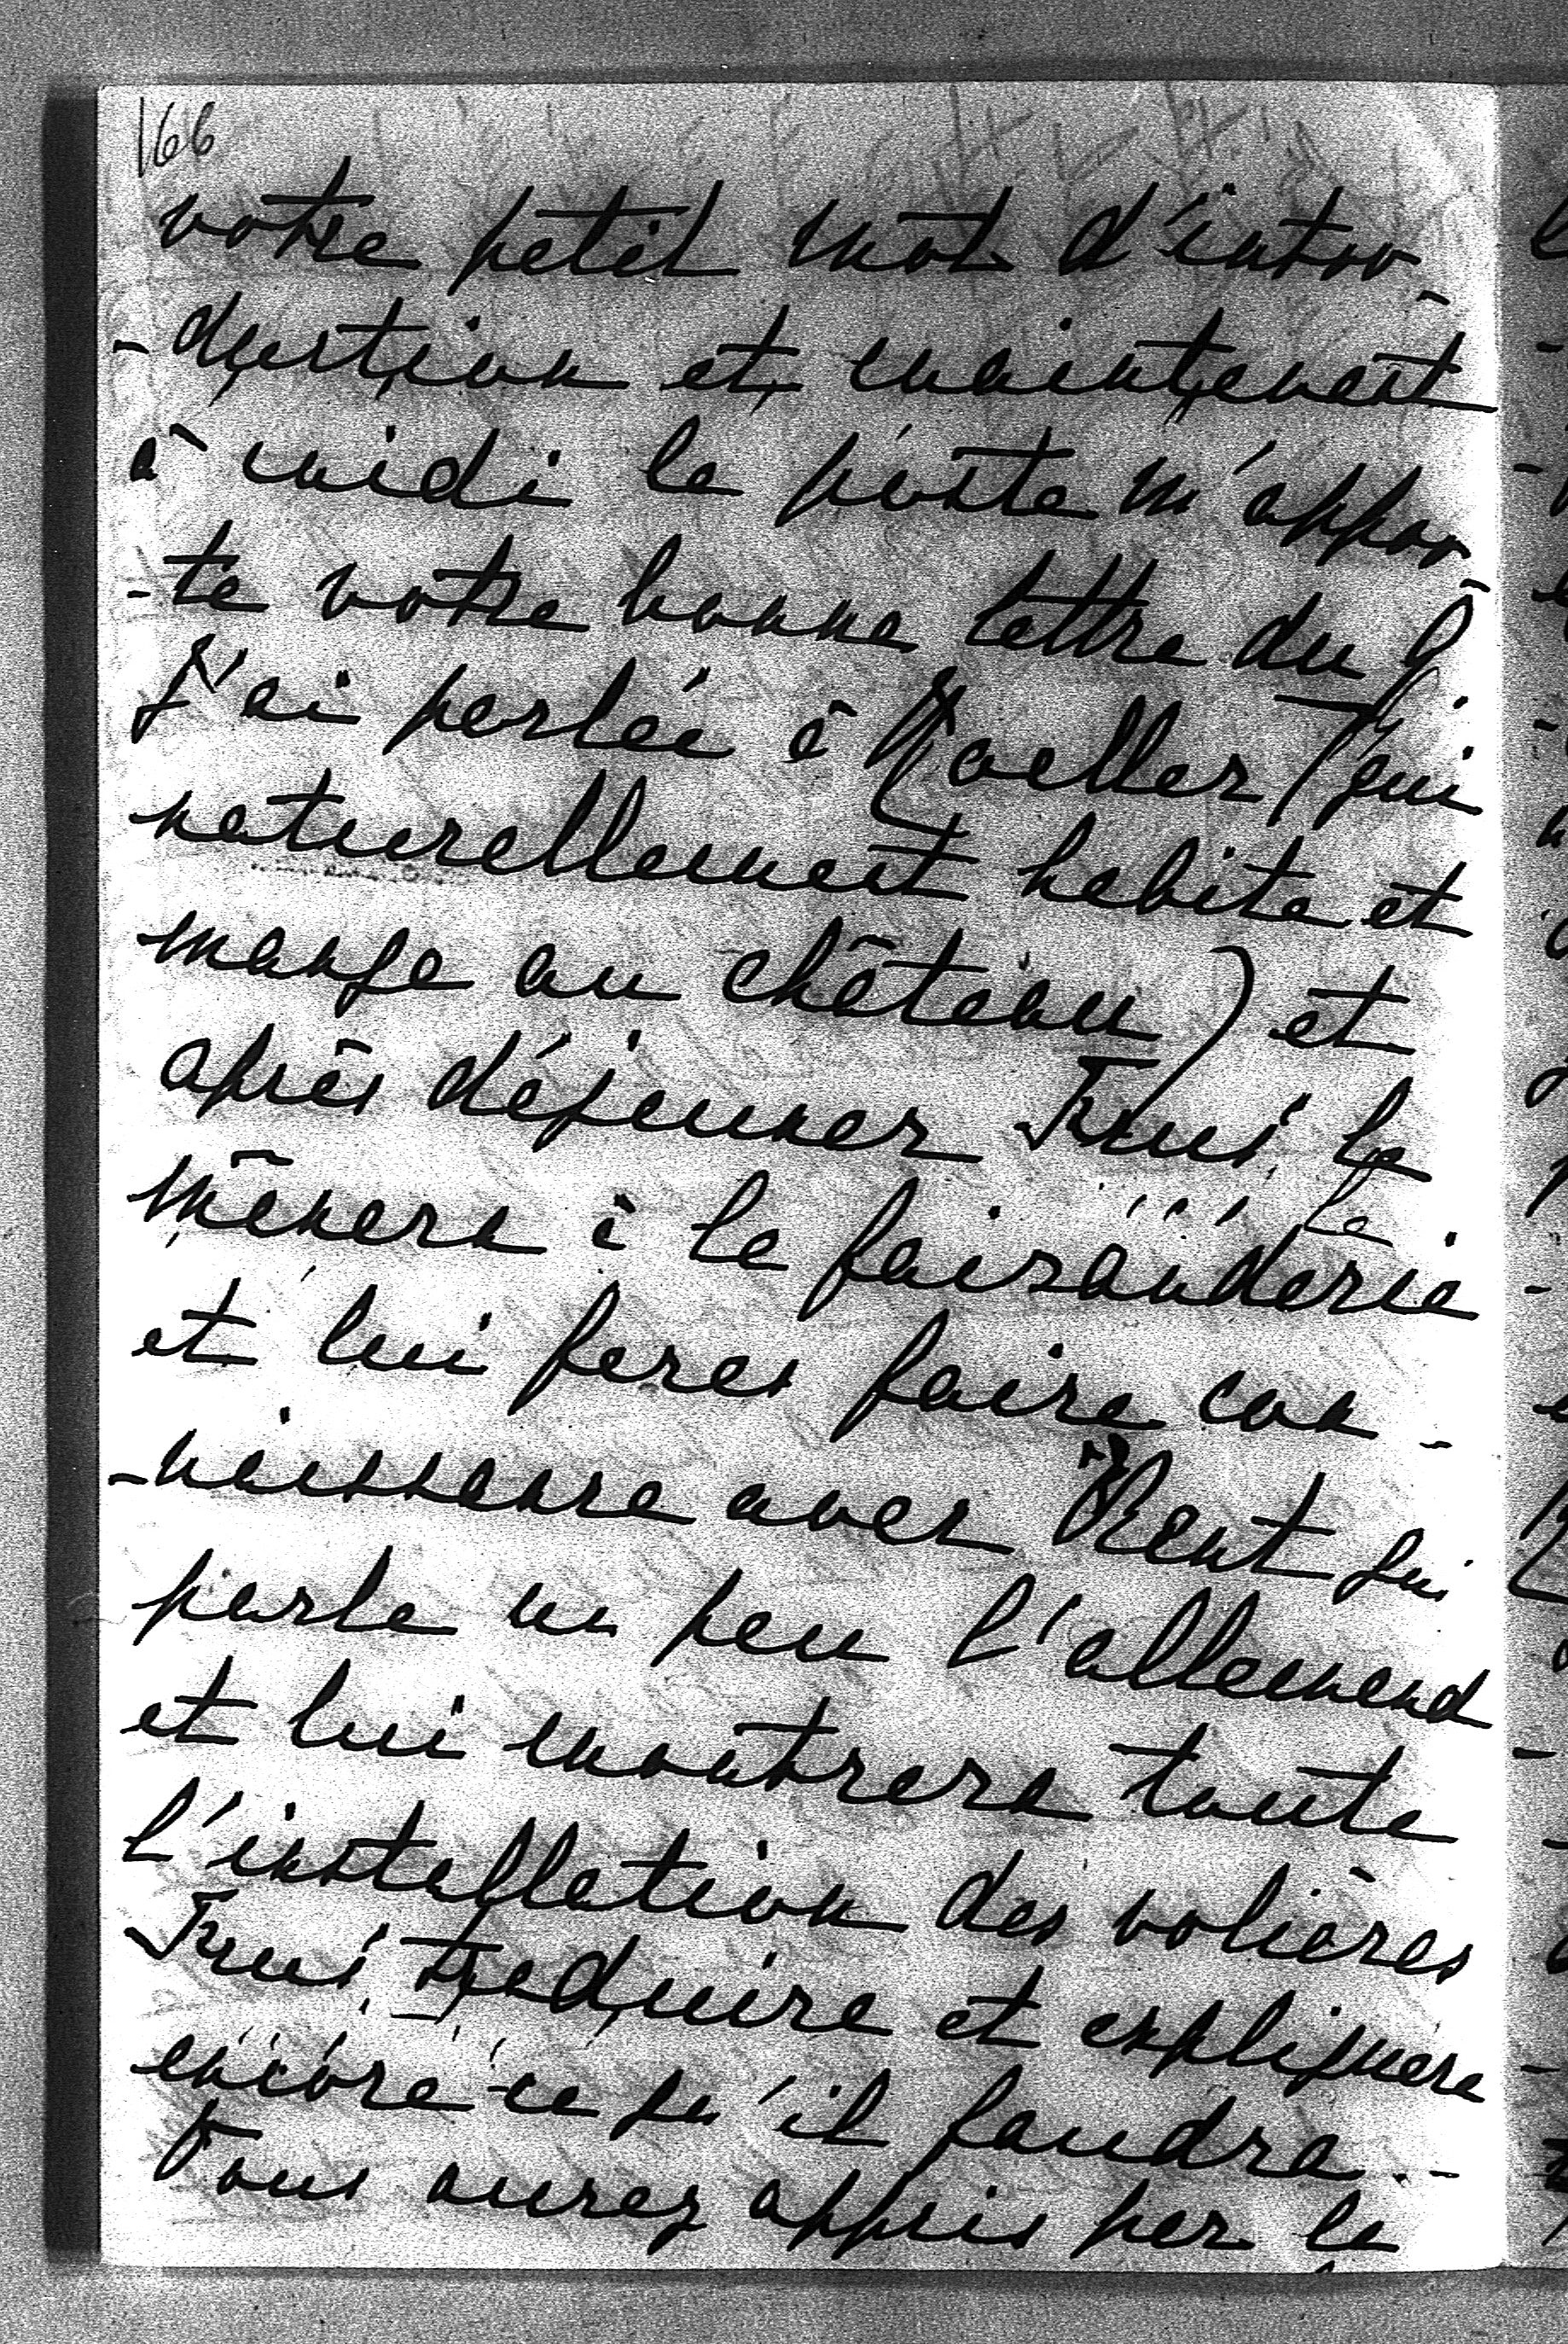 166
votre petit mot d'intro-
-duction et maintenant
à midi la poste m'appor-
-te votre bonne lettre du 9.
J'ai parlée à Koeller (qui
naturellement habite et
mange au château) et
après dejeuner Trui la
mènera à la faisanderie
et lui feras faire con-
-naissance avec Kent qui
parle un peu l'allemand
et lui montrera toute
l'installation des volières
Trui traduira et expliquera
encore ce qu'il faudra.-
Vous aurez appris par la